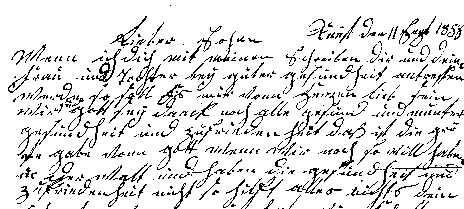 Lieber Sohn den 11 Sept 1858
Wenn ich dich mit meinen Schreiben dir und dein
frau und Tochter bey guter gesundheit antreffen
werden so soll Es mir vom Herzen lieb sein
Wir gott sey danck noch alle gesund und munter
gesundheit und zufriedenheit daß ist die grö
te gabe vom gott wenn Wir noch so vill haben
in der Welt und haben die gesundheit und
zufriedenheit nicht so hilft alles nichts dein